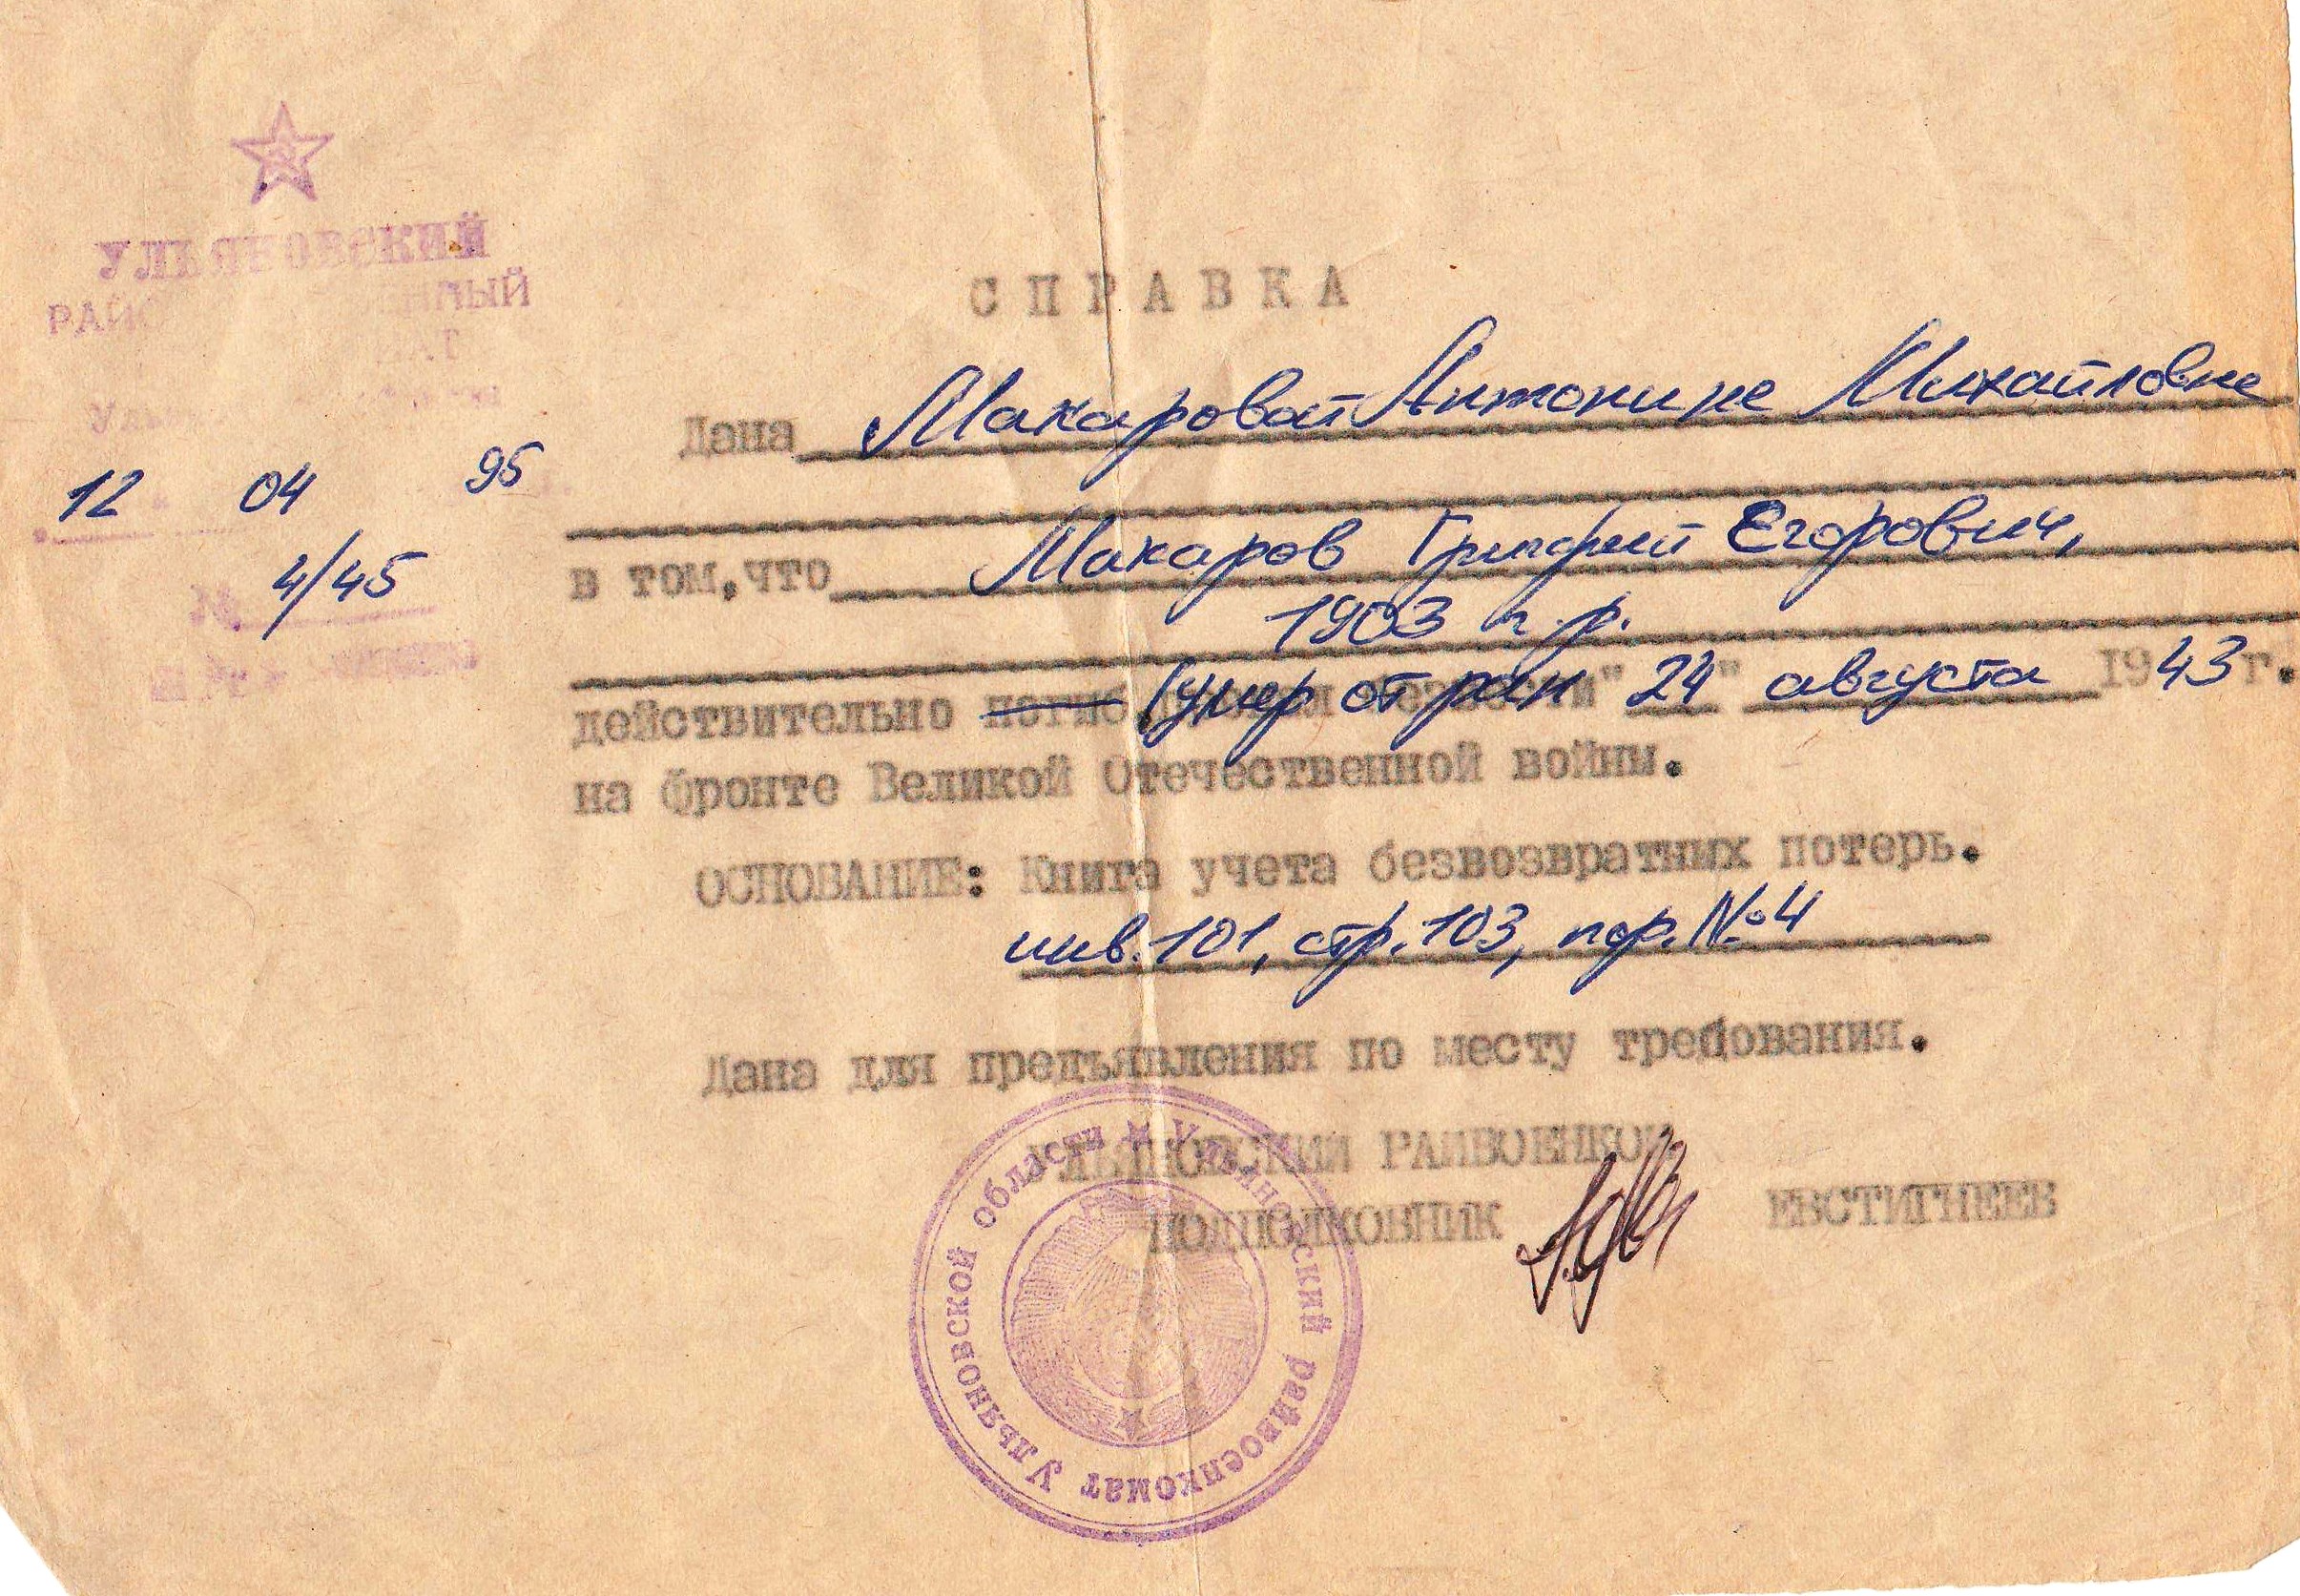 УЛЬЯНОВСКИЙ
12 04 95
№ 4/45
СПРАВКА
Дана Макаровой Антонине Михайловне
в том, что Макаров Григорий Егорович,
1903 г.р.
действительно погиб умер от ран "24" августа 1943 г.
на фронте Великой Отечественной войны.
ОСНОВАНИЕ: Книга учета безвозвратных потерь.
инв. 101, стр. 103, пор. № 4
Дана для предъявления по месту требования.
УЛЬЯНОВСКИЙ РАЙВОЕНКОМ
ПОДПОЛКОВНИК ЕВСТИГНЕЕВ
Ульяновский райвоенкомат Ульяновской области